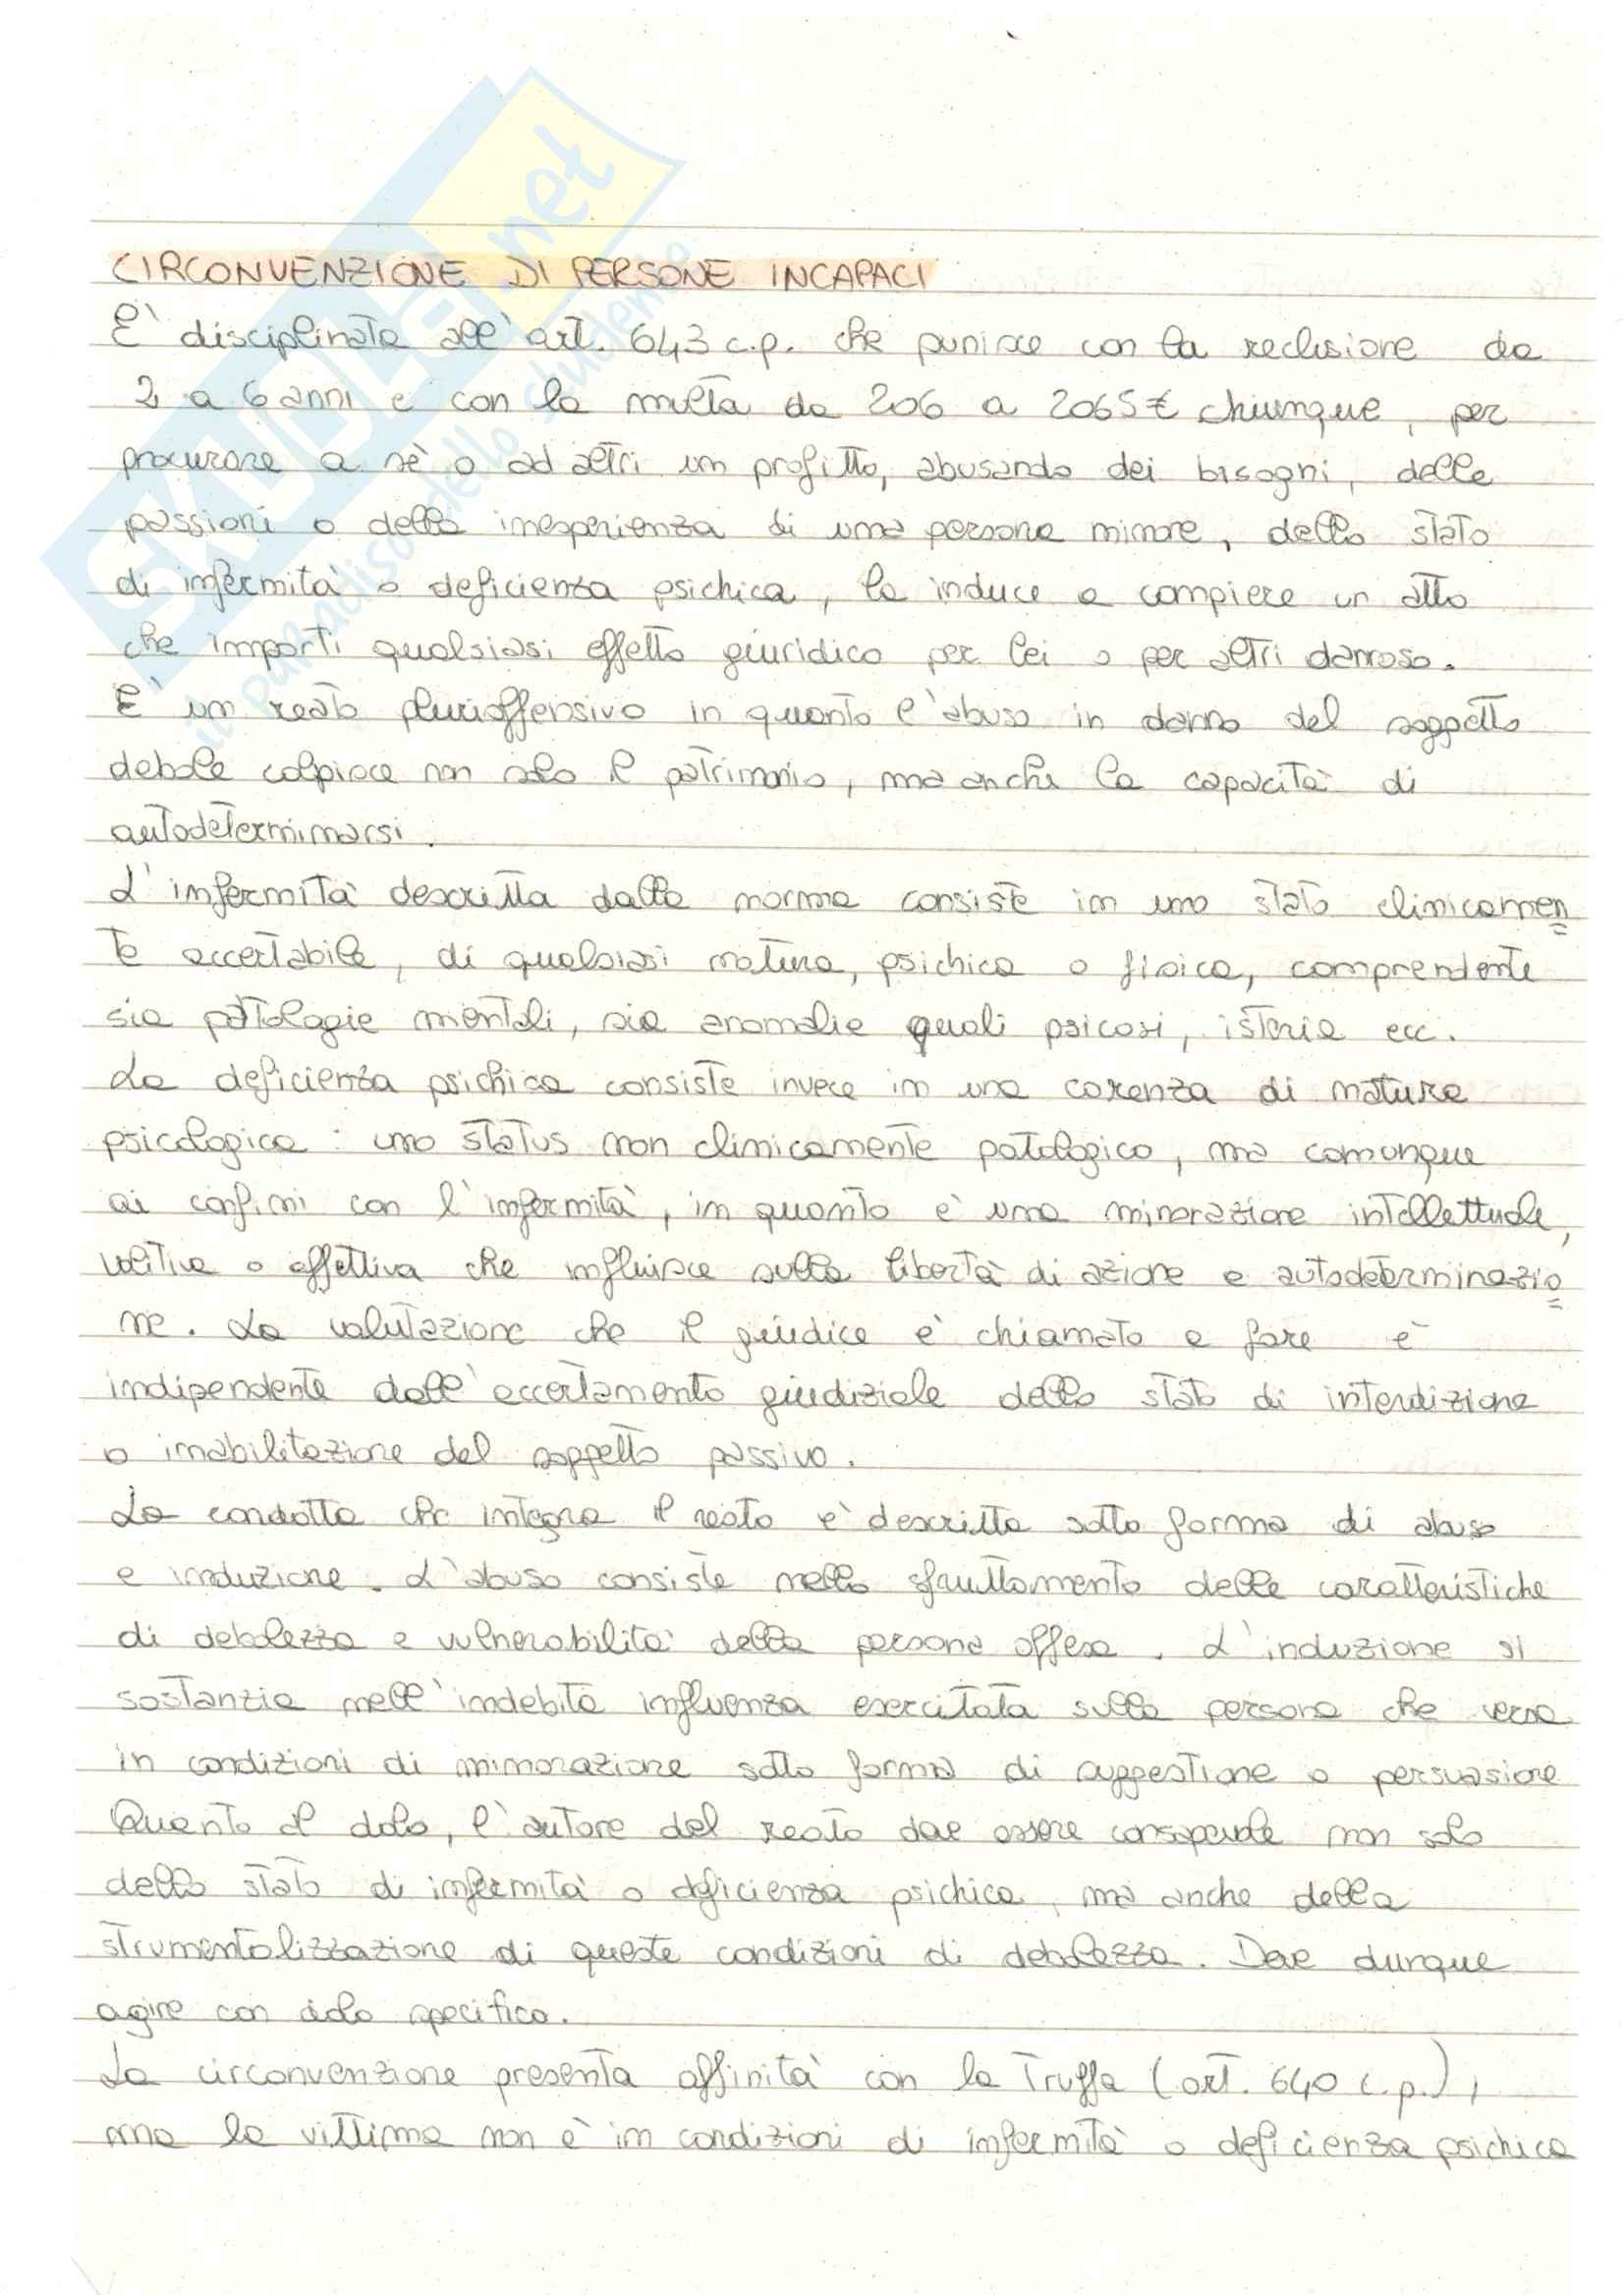 CIRCONVENZIONE DI PERSONE INCAPACI
E' disciplinata all'art. 643 c.p. che punisce con la reclusione da
2 a 6 anni e con la multa da 206 a 2065€ chiunque, per
procurare a sè o ad altri un profitto, abusando dei bisogni, delle
passioni o della inesperienza di una persona minore, dello stato
di infermità o deficienza psichica, la induce a compiere un atto
che importi qualsiasi effetto giuridico per lei o per altri dannoso.
E' un reato plurioffensivo in quanto l'abuso in danno del soggetto
debole colpisce non solo il patrimonio, ma anche la capacità di
autodeterminarsi.
L'infermità descritta dalla norma consiste in uno stato clinicamen
te accertabile, di qualsiasi natura, psichica o fisica, comprendente
sia patologie mentali, sia anomalie quali psicosi, isteria ecc.
La deficienza psichica consiste invece in una carenza di natura
psicologica: uno status non clinicamente patologico, ma comunque
ai confini con l'infermità, in quanto è una minorazione intellettuale,
volitiva o affettiva che influisce sulla libertà di azione e autodeterminazio
ne. La valutazione che il giudice è chiamato a fare è
indipendente dall'accertamento giudiziale dello stato di interdizione
o inabilitazione del soggetto passivo.
La condotta che integra il reato è descritta sotto forma di abuso
e induzione. L'abuso consiste nello sfruttamento delle caratteristiche
di debolezza e vulnerabilità della persona offesa. L'induzione si
sostanzia nell'indebita influenza esercitata sulla persona che versa
in condizioni di minorazione sotto forma di suggestione o persuasione
Quanto al dolo, l'autore del reato deve essere consapevole non solo
dello stato di infermità o deficienza psichica, ma anche della
strumentalizzazione di queste condizioni di debolezza. Deve dunque
agire con dolo specifico.
La circonvenzione presenta affinità con la Truffa (art. 640 c.p.),
ma la vittima non è in condizioni di infermità o deficienza psichica
SKUOLA.net
il paradiso dello studente